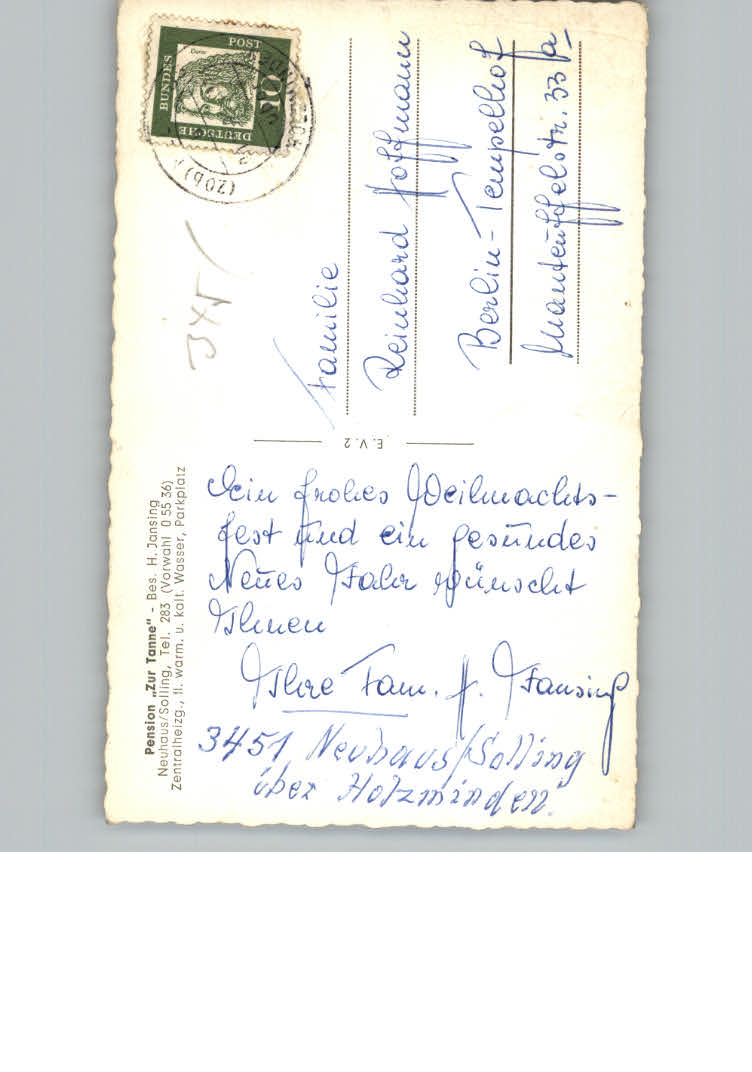 Pension „Zur Tanne" - Bes. H. Jansing
Neuhaus/Solling, Tel. 283 (Vorwahl 0 55 36)
Zentralheizg., fl. warm. u. kalt. Wasser, Parkplatz
Ein frohes Weihnachts-
fest und ein gesundes
Neues Jahr wünscht
Ihnen
Ihre Fam. H. Jansing
3451 Neuhaus/Solling
über Holzminden.
E.V.2
DEUTSCHE
BUNDES
POST
10
Dürer
(20b)
345
Familie
Reinhard Hoffmann
Berlin-Tempelhof
Manteuffelstr. 33 a